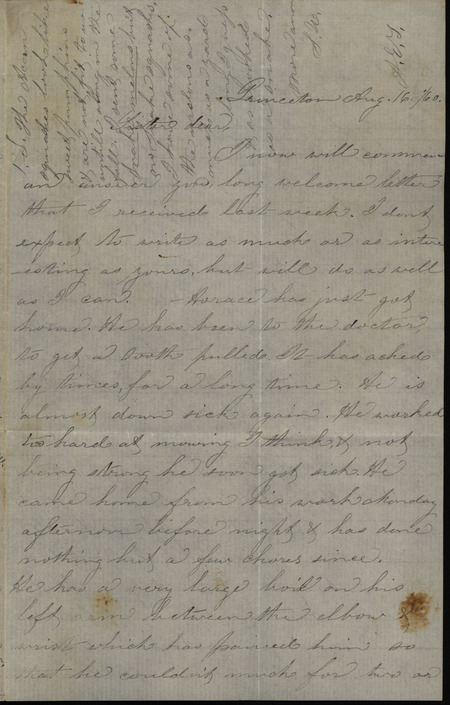 Princeton Aug. 16. /60.
Sister dear,
I now will commence
an answer your long welcome letter
that I received last week. I dont
expect to write as much or as inter
-esting as yours, but will do as well
as I can. - Horace has just got
home. He has been to the doctor
to get a tooth pulled. It has ached
by times, for a long time. He is
almost down sick again. He worked
to hard at mowing I think, & not
being strong he soon got sick. He
came home from his work Monday
afternoon before night & has done
nothing but a few chores since.
He has a very large boil on his
left arm between the elbow &
wrist which has pained him so
that he couldn't much for two or
P.S. The
squashes look like
sweet pumpkins
& are not fit to
until
fall I sent some
melons but
no squashes,
I have some of
the melons as
as a yard
long
as a snake.